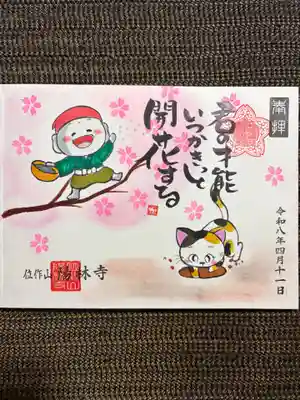 奉拝
君の才能
いつかきっと
開花する
令和八年四月十一日
佐作山 陽林寺